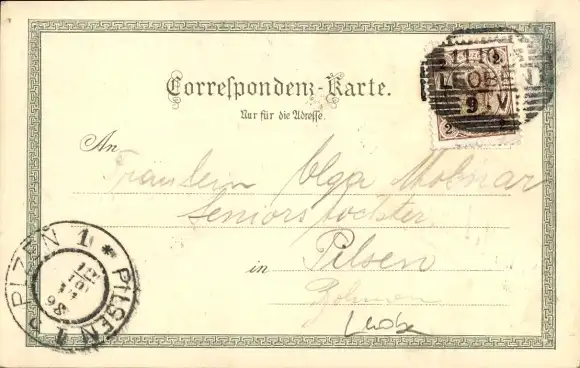 11.10.
LEOBEN 1
9 V
2
2
Correspondenz-Karte.
Nur für die Adresse.
An
Fräulein Olga Molnar
Seniorstochter
in Pilsen
Böhmen
Leoben
PLZEŇ 1 * PILSEN 1
98